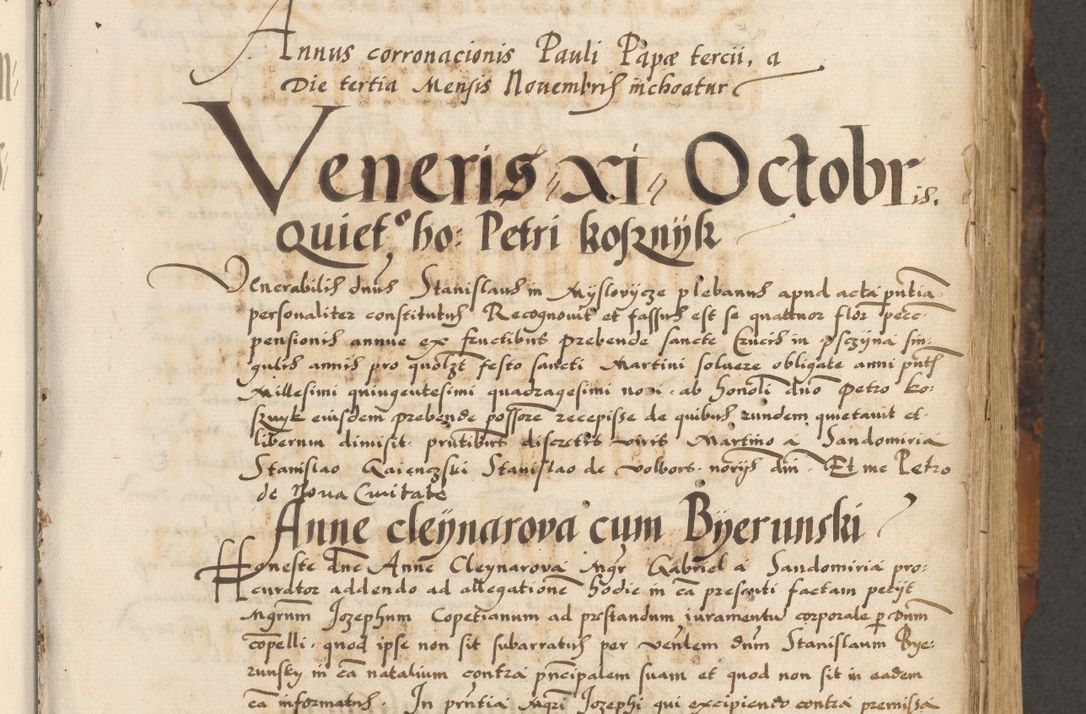 Annus corronacionis Pauli Papæ tercii, a
Die tertia Mensis Novembris inchoatur
Veneris xi Octobris.
Quiet.º ho: Petri koßnÿk
Venerabilis dnus Stanislaus in Myslovycze plebanus apud acta pntia
personaliter constitutus Recognovit et fassus est se quattuor flor pecc
pensionis annue ex fructibus prebende sancte Crucis in Psczyna sin:
gulis annis pro quolzt festo sancti Martini solvere obligate anni pntis
Millesimi quingentesimi quadragesimi no i ab honoli dno Petro ko:
sznyk eiusdem prebende possore recepisse de quibus eundem quietavit et
liberum dimisit. pntibus discretis viris Martino a Sandomiria
Stanislao Stanislao de volbors. norijs din. Et me Petro
de Nova Civitate
Anne cleÿnarova cum Byerunski
Honeste dne Anne Cleynarova Mgr Gabriel a Sandomiria pro:
curator addendo ad allegationem hodie in ca presenti factam petijt
Mgrum Jozephum Copetianum ad prstandum iuramentu corporale per dnum
copelli. quod ipse non sit subarratus per venlem dnm Stanislaum Bye:
runsky in ca natalium contra pncipalem suam et quod non sit in eadem
ca informatus. In pntia Mgri Jozephi qui excipiendo contra premissa